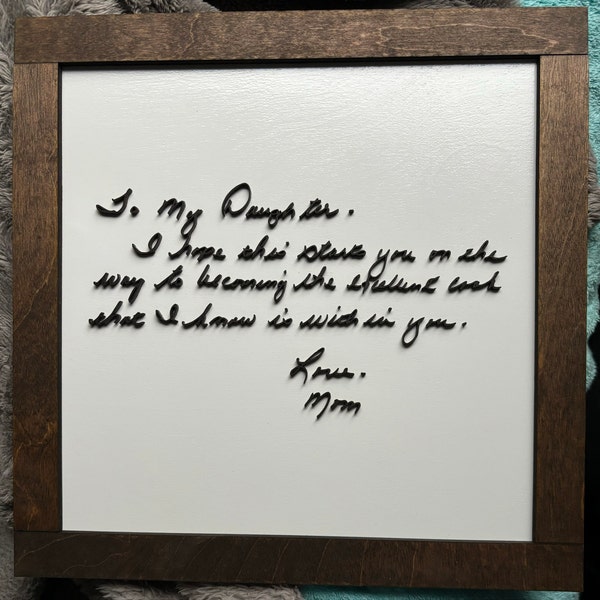 To My Daughter.
I hope this starts you on the
way to becoming the exellent cook
that I know is within you.
Love.
Mom